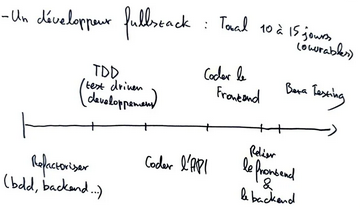 - Un développeur fullstack : Total 10 à 15 jours
(ouvrables)
TDD
(test driven
developpement)
Coder le
Frontend
Beta Testing
Refactoriser
(bdd, backend...)
Coder l'API
Relier
le frontend
&
le backend